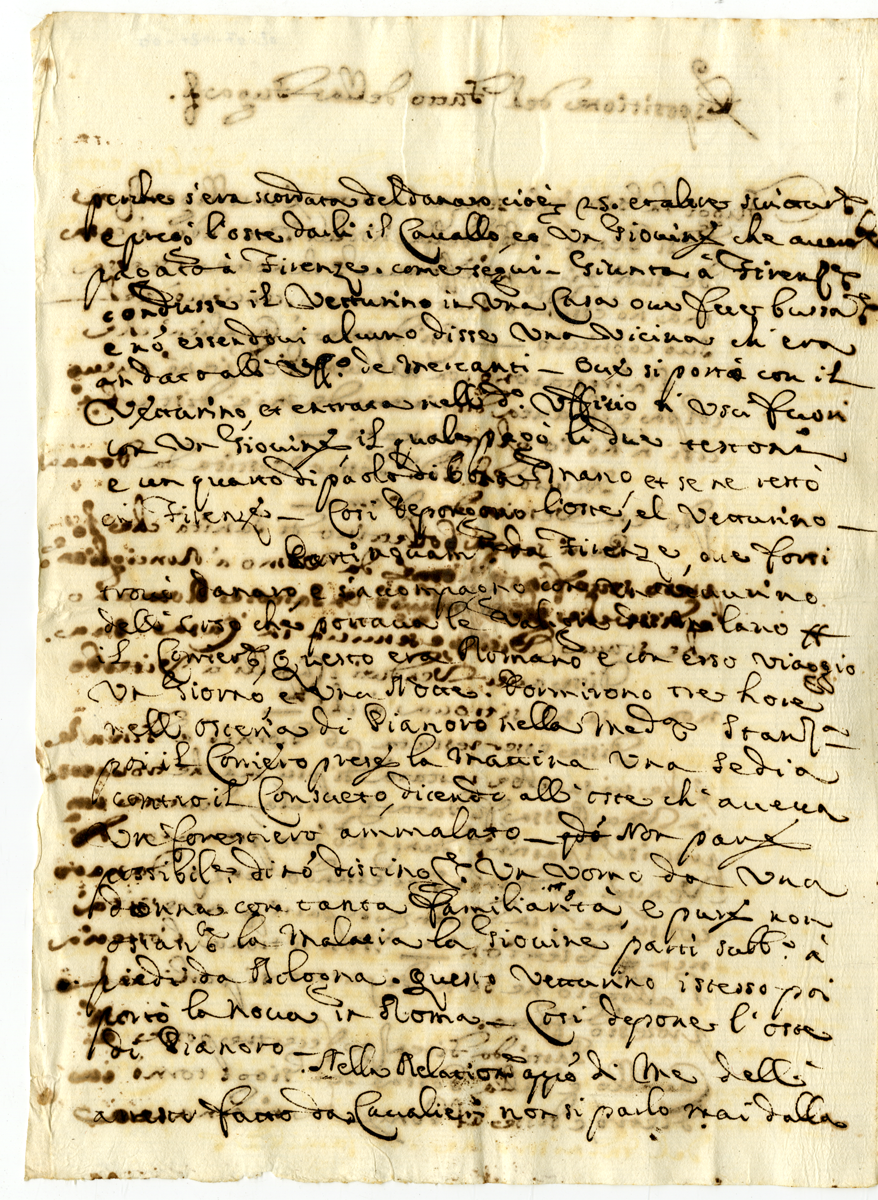 perche s'era scordata del danaro cioè 25. et altre scritture
e pregò l'oste darli il Cavallo, et Un Giovine che avere
pagato à Firenze. come seguì_ Giunta à Firenze
condusse il Vetturino in Una Casa ove fece bussare
e nō essendovi alcuno disse Una Vicina ch'era
andato all' Uffo. de Mercanti_ Ove si portò con il
Vetturino, et entrata nello do. Uffitio ne Uscì fuori
con Un Giovine il quale pagò li due testoni
e un quarto di paolo di et se ne restò
in Firenze_ Così depongono l'oste, el Vetturino_
Partì da Firenze, ove forsi
trovò danaro e s'accompagnò con
dell' che portava le Milano
il Corriero, Questo era Romano e con esso viaggiò
Un Giorno et Una Notte. Dormirono tre hore
nell' osteria di Pianoro nella Meda. Stanza_
poi il Corriero prese la Mattina Una Sedia
contro il Consueto, dicendo all' oste ch' aveva
Un forestiero ammalato_ Non pare
possibile di nō distinguere Un Uomo da Una
donna con tanta familiarità, e pure non
ostante la Malatia la Giovine partì subbo. à
piedi da Bologna. Questo Vetturino istesso poi
portò la nova in Roma_ Così depone l'oste
di Pianoro_
Nella Relatione appo. di Me dell'
arresto fatto da Cavalieri non si parlò mai dalla